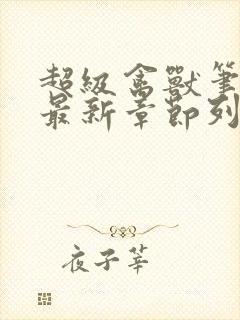 超級禽獸筆
最新章節列
夜子莘